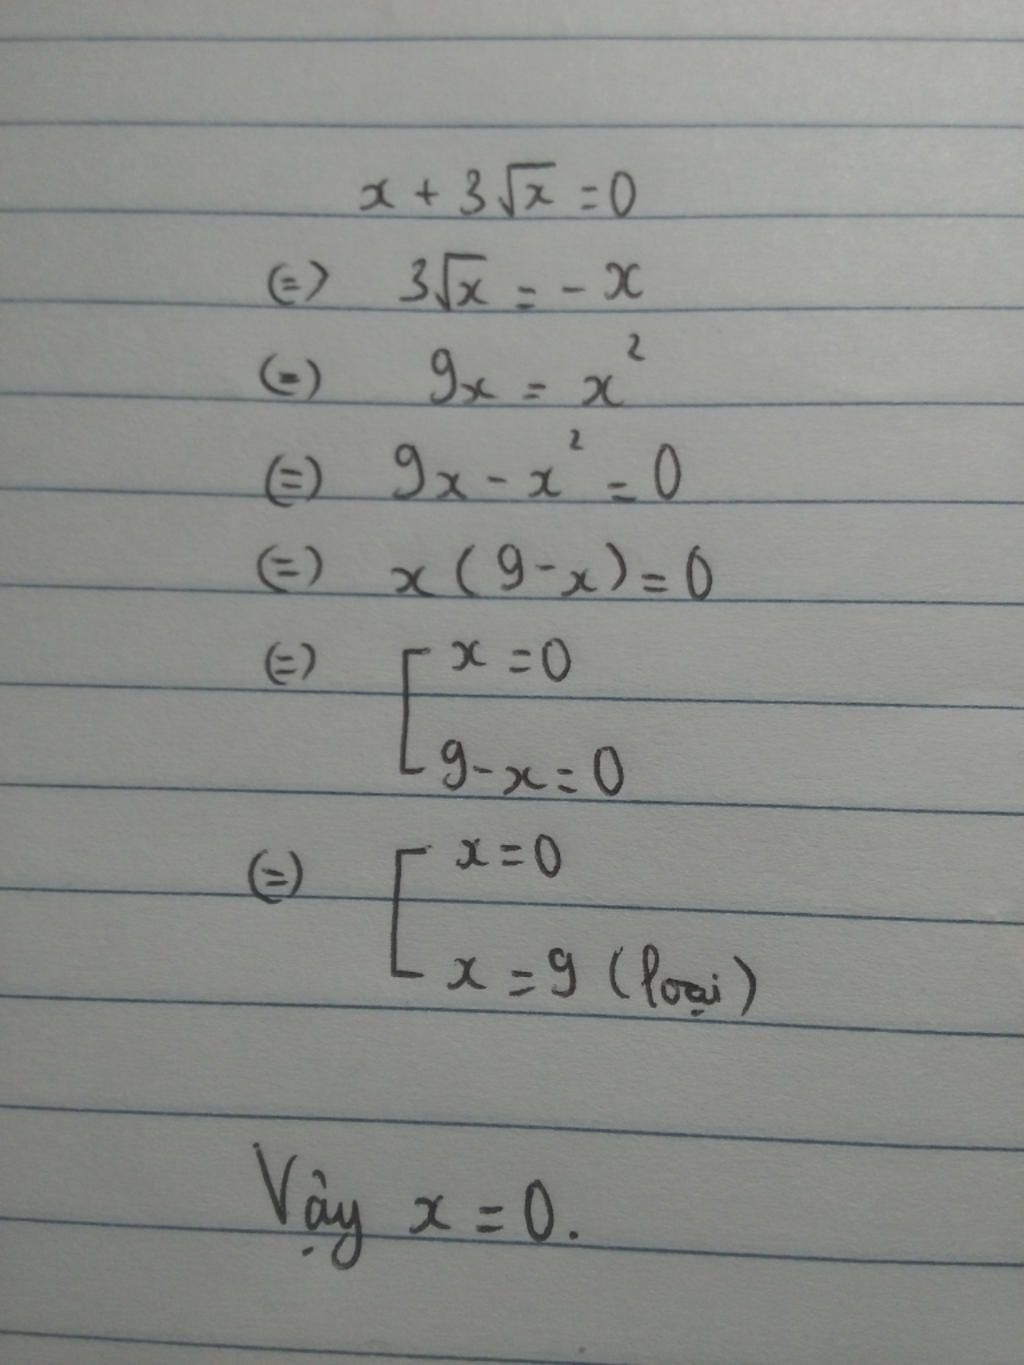 x + 3√x = 0
(=) 3√x = - x
(=) 9x = x²
(=) 9x - x² = 0
(=) x ( 9 - x ) = 0
(=) [ x = 0
9 - x = 0
(=) [ x = 0
x = 9 (loại)
Vậy x = 0.